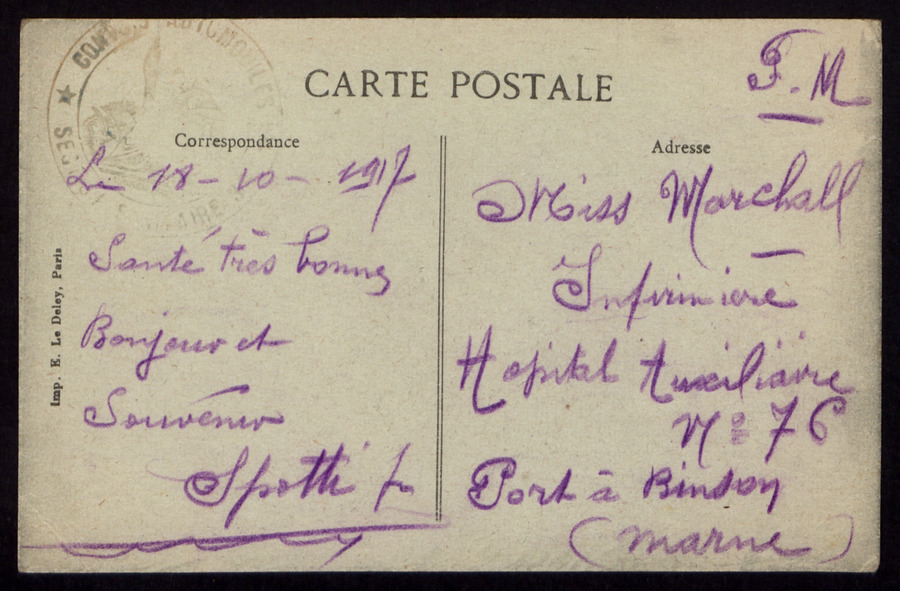 CONVOIS AUTOMOBILES
CARTE POSTALE
F. M
Correspondance
Le 18-10-1917
Santé très bonne
Bonjour et
Souvenir
Spotti f
Imp. E. Le Deley, Paris
Adresse
Miss Marchall
Infirmière
Hopital Auxiliaire
Nº 76
Port à Binson
(Marne)